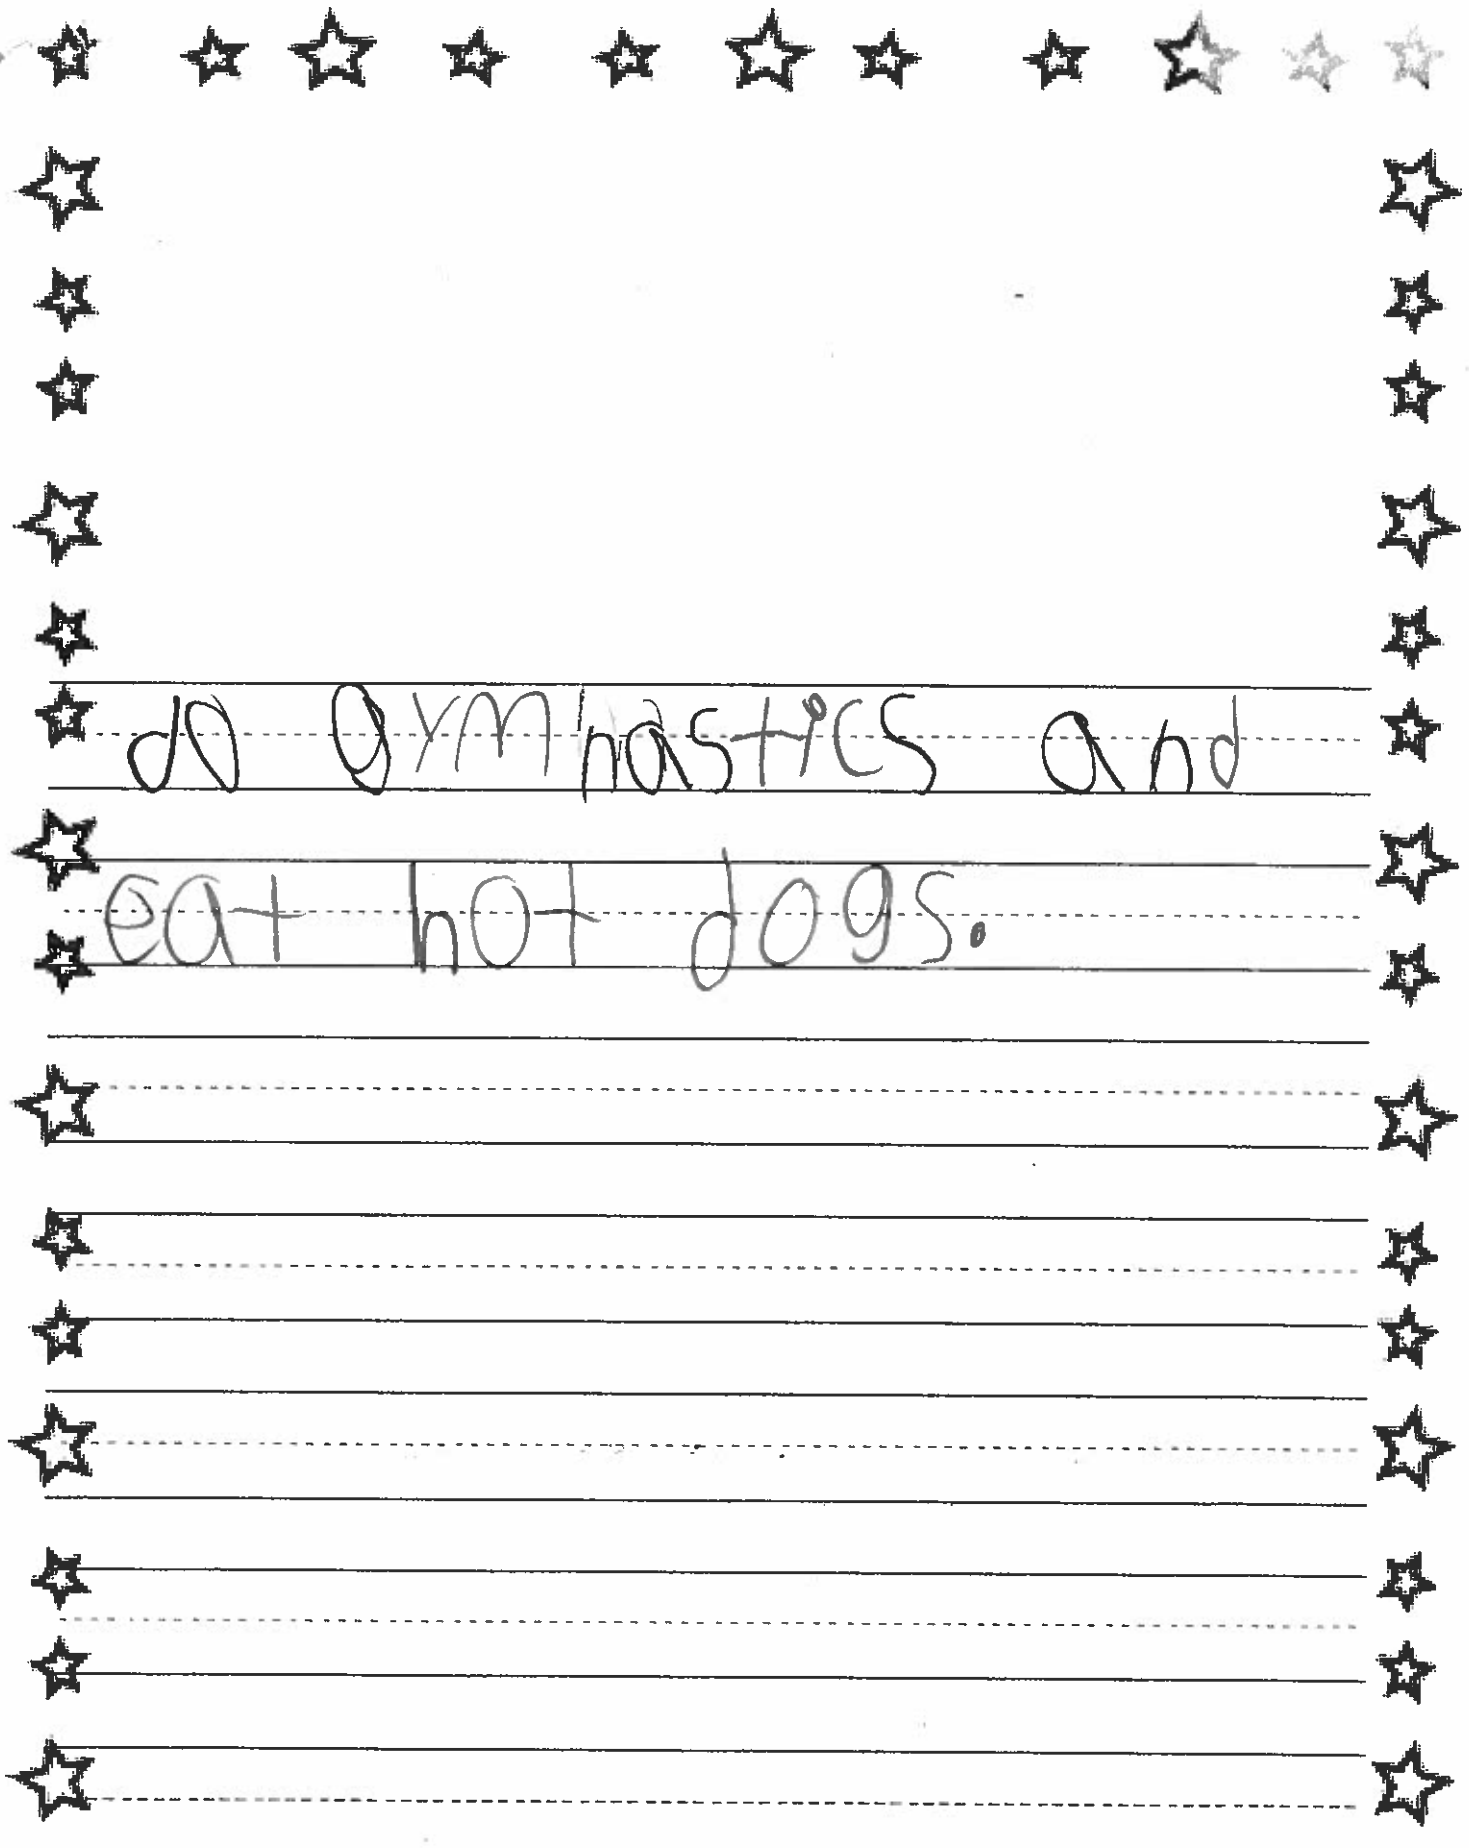 do gymnastics and
eat hot dogs.